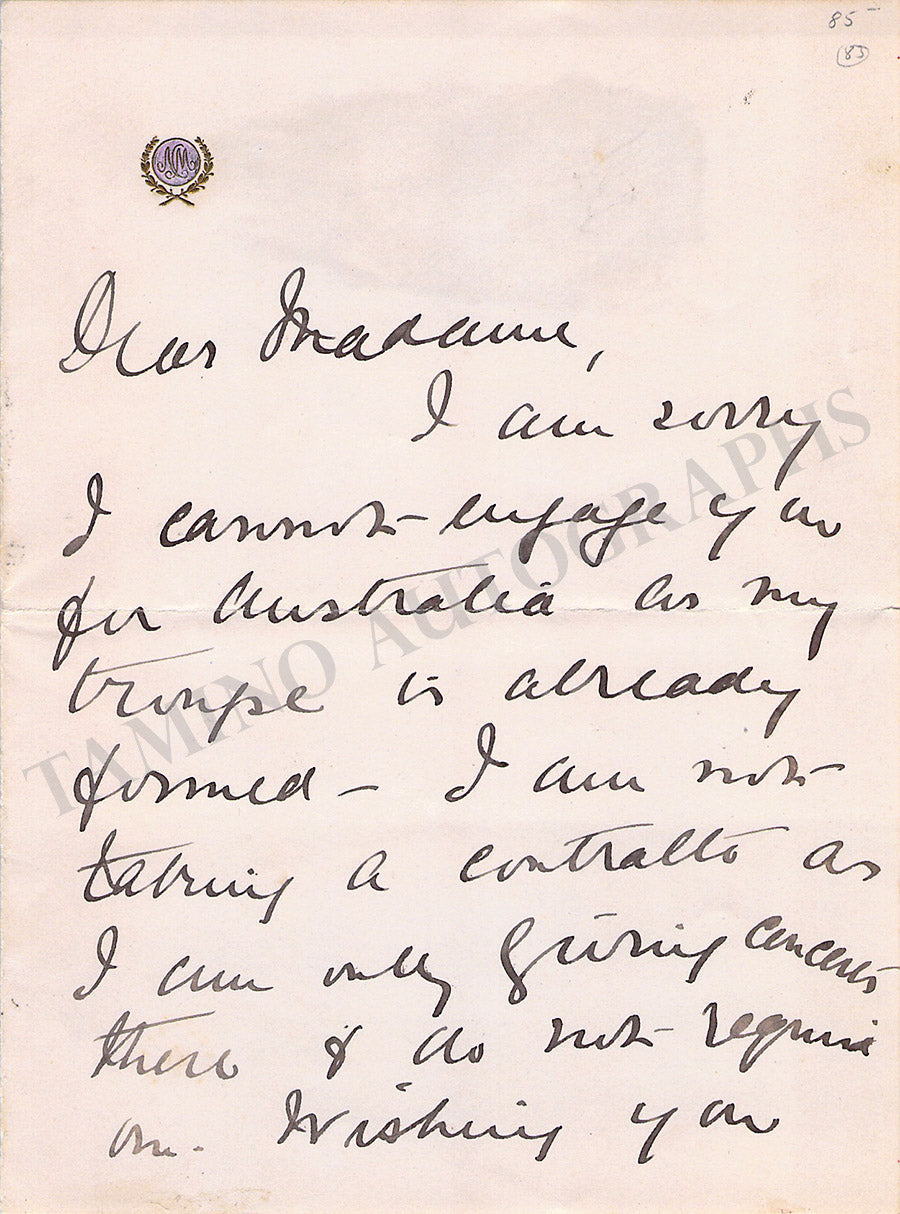 85-
83
NM
Dear Madame,
I am sorry
I cannot engage you
for Australia as my
troupe is already
formed - I am not
taking a contralto as
I am only giving concerts
there & do not require
one. Wishing you
TAMINO AUTOGRAPHS